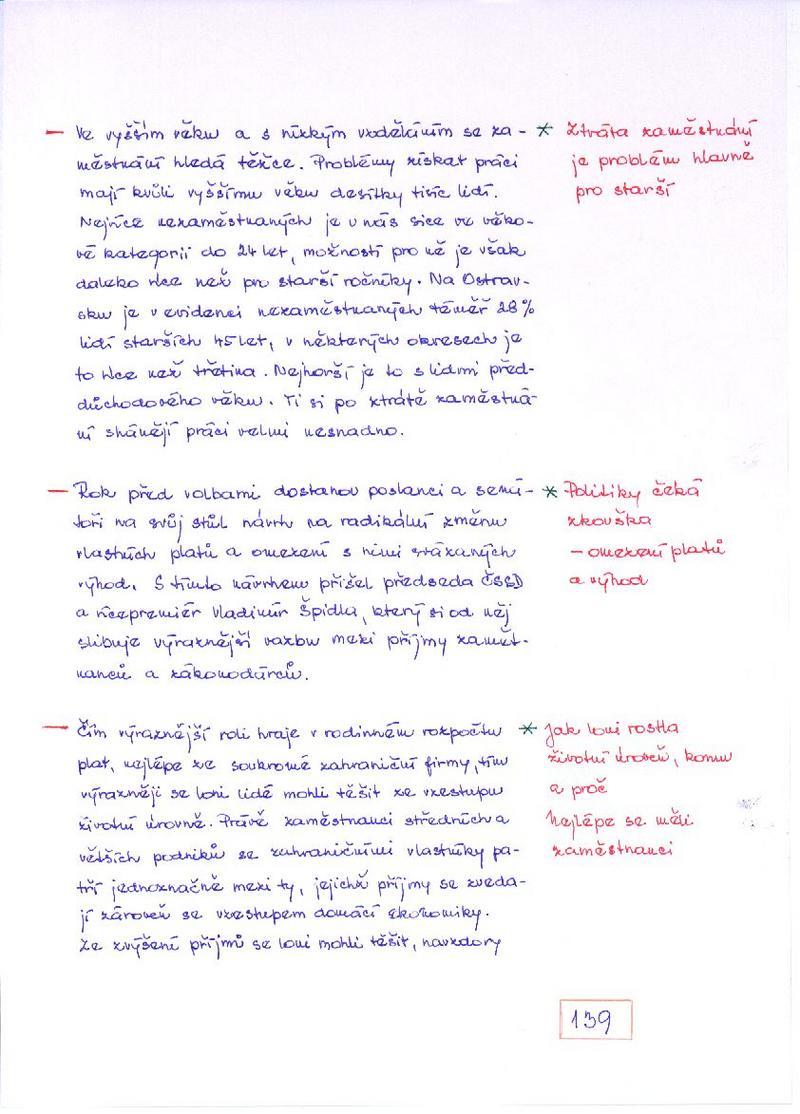 – Ve vyšším věku a s nízkým vzděláním se za-
městnání hledá těžce. Problémy získat práci
mají kvůli vyššímu věku desítky tisíc lidí.
Nejvíce nezaměstnaných je u nás sice ve věko-
vé kategorii do 24 let, možností pro ně je však
daleko více než pro starší ročníky. Na Ostrav-
sku je v evidenci nezaměstnaných téměř 28%
lidí starších 45 let, v některých okresech je
to více než třetina. Nejhorší je to s lidmi před-
důchodového věku. Ti si po ztrátě zaměstná-
ní shánějí práci velmi nesnadno.
* Ztráta zaměstnání
je problém hlavně
pro starší
– Rok před volbami dostanou poslanci a sená-
toři na svůj stůl návrh na radikální změnu
vlastních platů a omezení s nimi svázaných
výhod. S tímto návrhem přišel předseda ČSSD
a vicepremiér Vladimír Špidla, který si od něj
slibuje výraznější vazbu mezi příjmy zaměst-
nanců a zákonodárců.
* Politiky čeká
zkouška
– omezení platů
a výhod
– Čím výraznější roli hraje v rodinném rozpočtu
plat, nejlépe ze soukromé zahraniční firmy, tím
výrazněji se loni lidé mohli těšit ze vzestupu
životní úrovně. Právě zaměstnanci středních a
větších podniků se zahraničními vlastníky pa-
tří jednoznačně mezi ty, jejichž příjmy se zveda-
jí zároveň se vzestupem domácí ekonomiky.
Ze zvýšení příjmů se loni mohli těšit, navzdory
* Jak loni rostla
životní úroveň, komu
a proč
Nejlépe se měli
zaměstnanci
139